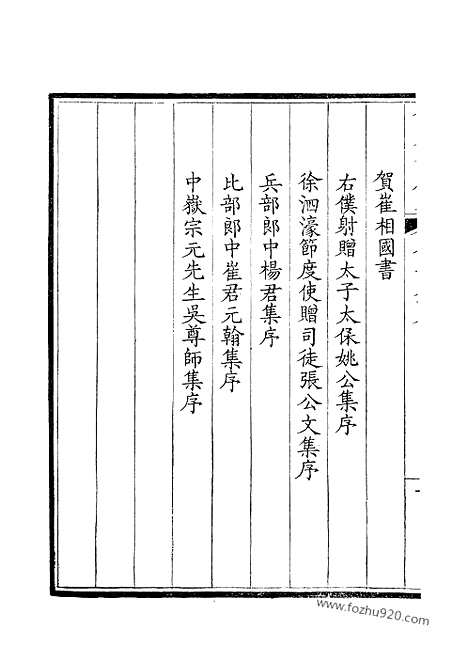 賀崔相國書
右僕射贈太子太保姚公集序
徐泗濠節度使贈司徒張公文集序
兵部郎中楊君集序
比部郎中崔君元翰集序
中嶽宗元先生吳尊師集序
www.fozhu920.com